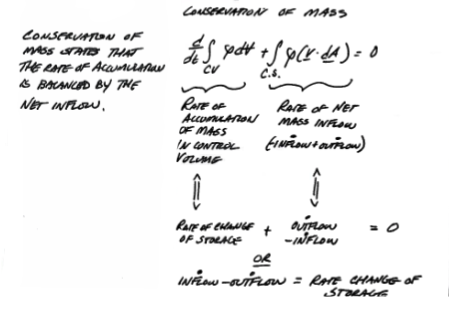 CONSERVATION OF MASS
CONSERVATION OF
MASS STATES THAT
THE RATE OF ACCUMULATION
IS BALANCED BY THE
NET INFLOW.
d/dt ∫ ρdV + ∫ ρ(V·dA) = 0
CV C.S.
RATE OF
ACCUMULATION
OF MASS
IN CONTROL
VOLUME
RATE OF NET
MASS INFLOW
(-INFLOW+OUTFLOW)
RATE OF CHANGE
OF STORAGE
+
OUTFLOW
-INFLOW
= 0
OR
INFLOW-OUTFLOW = RATE CHANGE OF
STORAGE